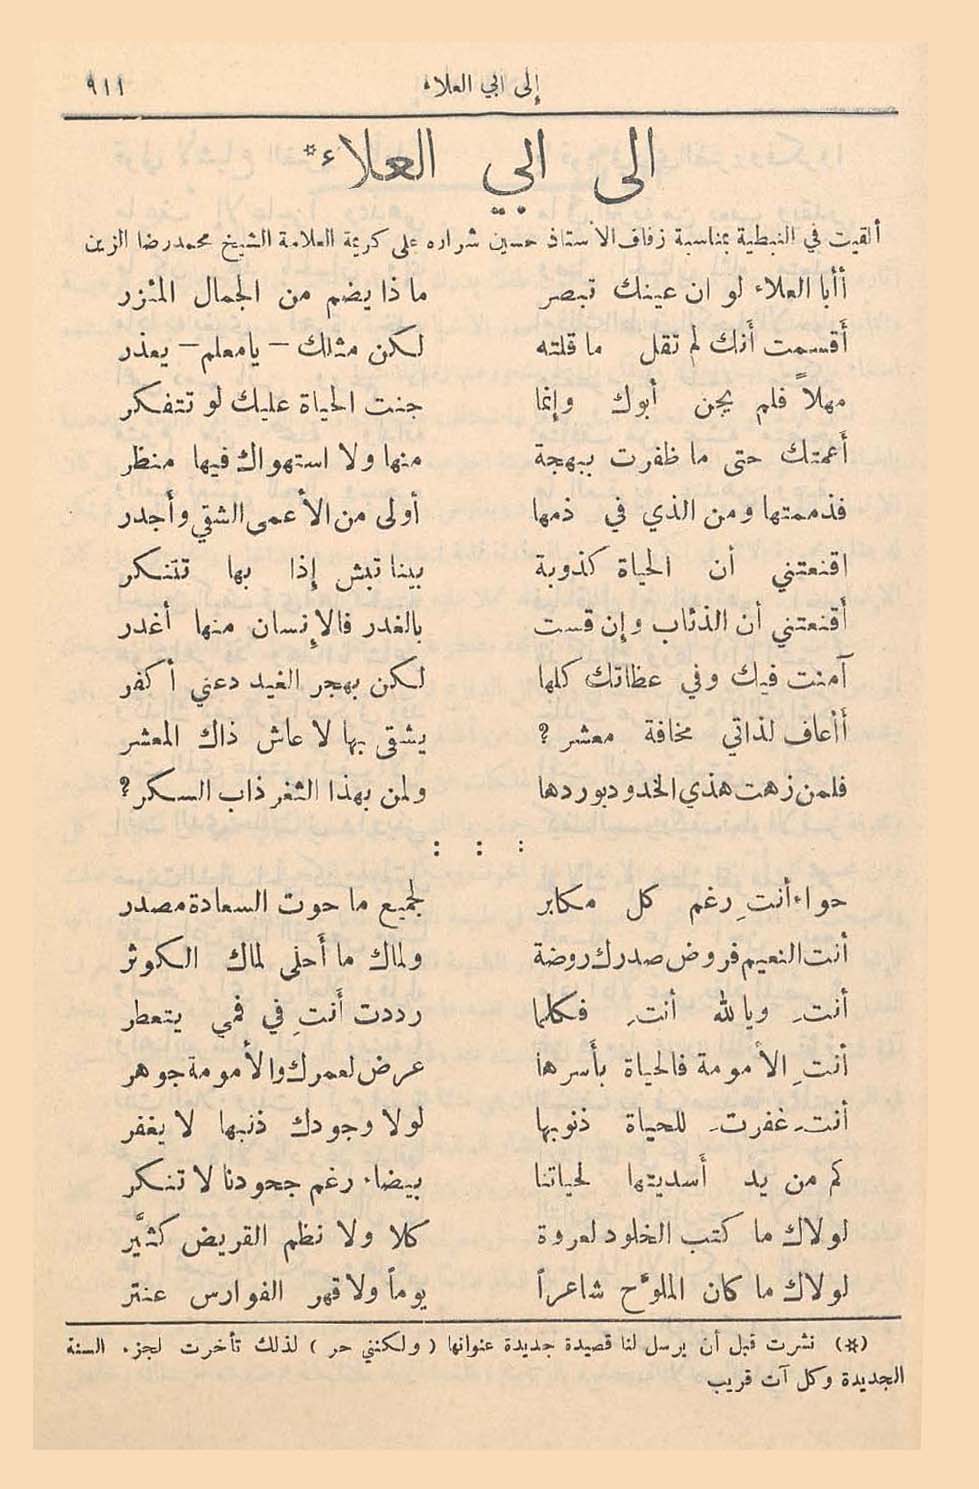 إلى ابي العلاء ٩١١
الى ابي العلاء*
ألقيت في النبطية بمناسبة زفاف الاستاذ حسين شراره على كريمة العلامة الشيخ محمد رضا الزين
أأبا العلاء لو ان عينك تبصر ما ذا يضم من الجمال المئزر
أقسمت أنك لم تقل ما قلته لكن مثلك – يا معلم – يعذر
مهلاً فلم يجن أبوك وإنما جنت الحياة عليك لو تتفكر
أعمتك حتى ما ظفرت ببهجة منها ولا استهواك فيها منظر
فذممتها ومن الذي في ذمها أولى من الأعمى الشقي وأجدر
اقنعتني أن الحياة كذوبة بينا تبش إذا بها تتنكر
أقنعتني أن الذئاب وإن قست بالغدر فالإنسان منها أغدر
آمنت فيك وفي عظاتك كلها لكن بهجر الغيد دعني أكفر
أأعاف لذاتي مخافة معشر ? يشقى بها لا عاش ذاك المعشر
فلمن زهت هذي الخدود بوردها ولمن بهذا الثغر ذاب السكر ?
: : :
حواء أنتِ رغم كل مكابر لجميع ما حوت السعادة مصدر
أنت النعيم فروض صدرك روضة ولماك ما أحلى لماك الكوثر
أنتِ وبالله أنتِ فكلما رددت أنتِ في فمي يتعطر
أنتِ الأمومة فالحياة بأسرها عرض لعمرك والأمومة جوهر
أنتِ غفرتِ للحياة ذنوبها لولا وجودك ذنبها لا يغفر
كم من يد أسديتها لحياتنا بيضاء رغم جحودنا لا تنكر
لولاك ما كتب الخلود لعروة كلا ولا نظم القريض كثيّر
لولاك ما كان الملوّح شاعراً يوماً ولا قهر الفوارس عنتر
(*) نشرت قبل أن يرسل لنا قصيدة جديدة عنوانها ( ولكنني حر ) لذلك تأخرت لجزء السنة
الجديدة وكل آت قريب